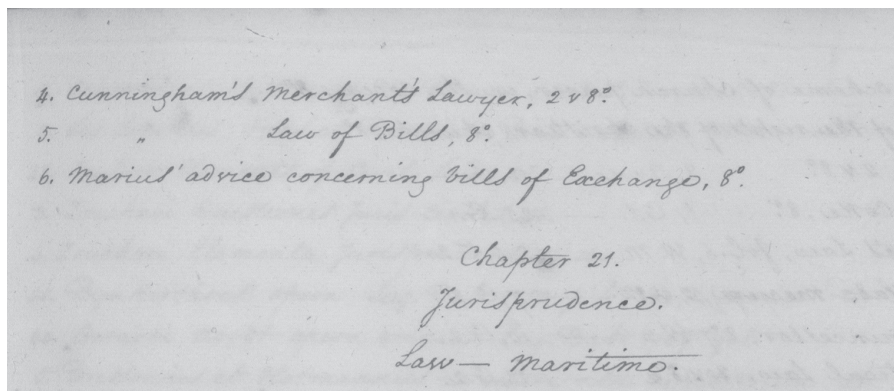 4. Cunningham's Merchant's Lawyer, 2 v 8°.
5. " Law of Bills, 8°.
6. Marius' advice concerning bills of Exchange, 8°.
Chapter 21.
Jurisprudence.
Law — Maritime.